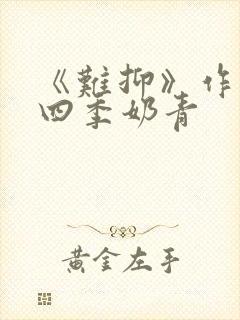 《難抑》作
四季奶青
黃金左手